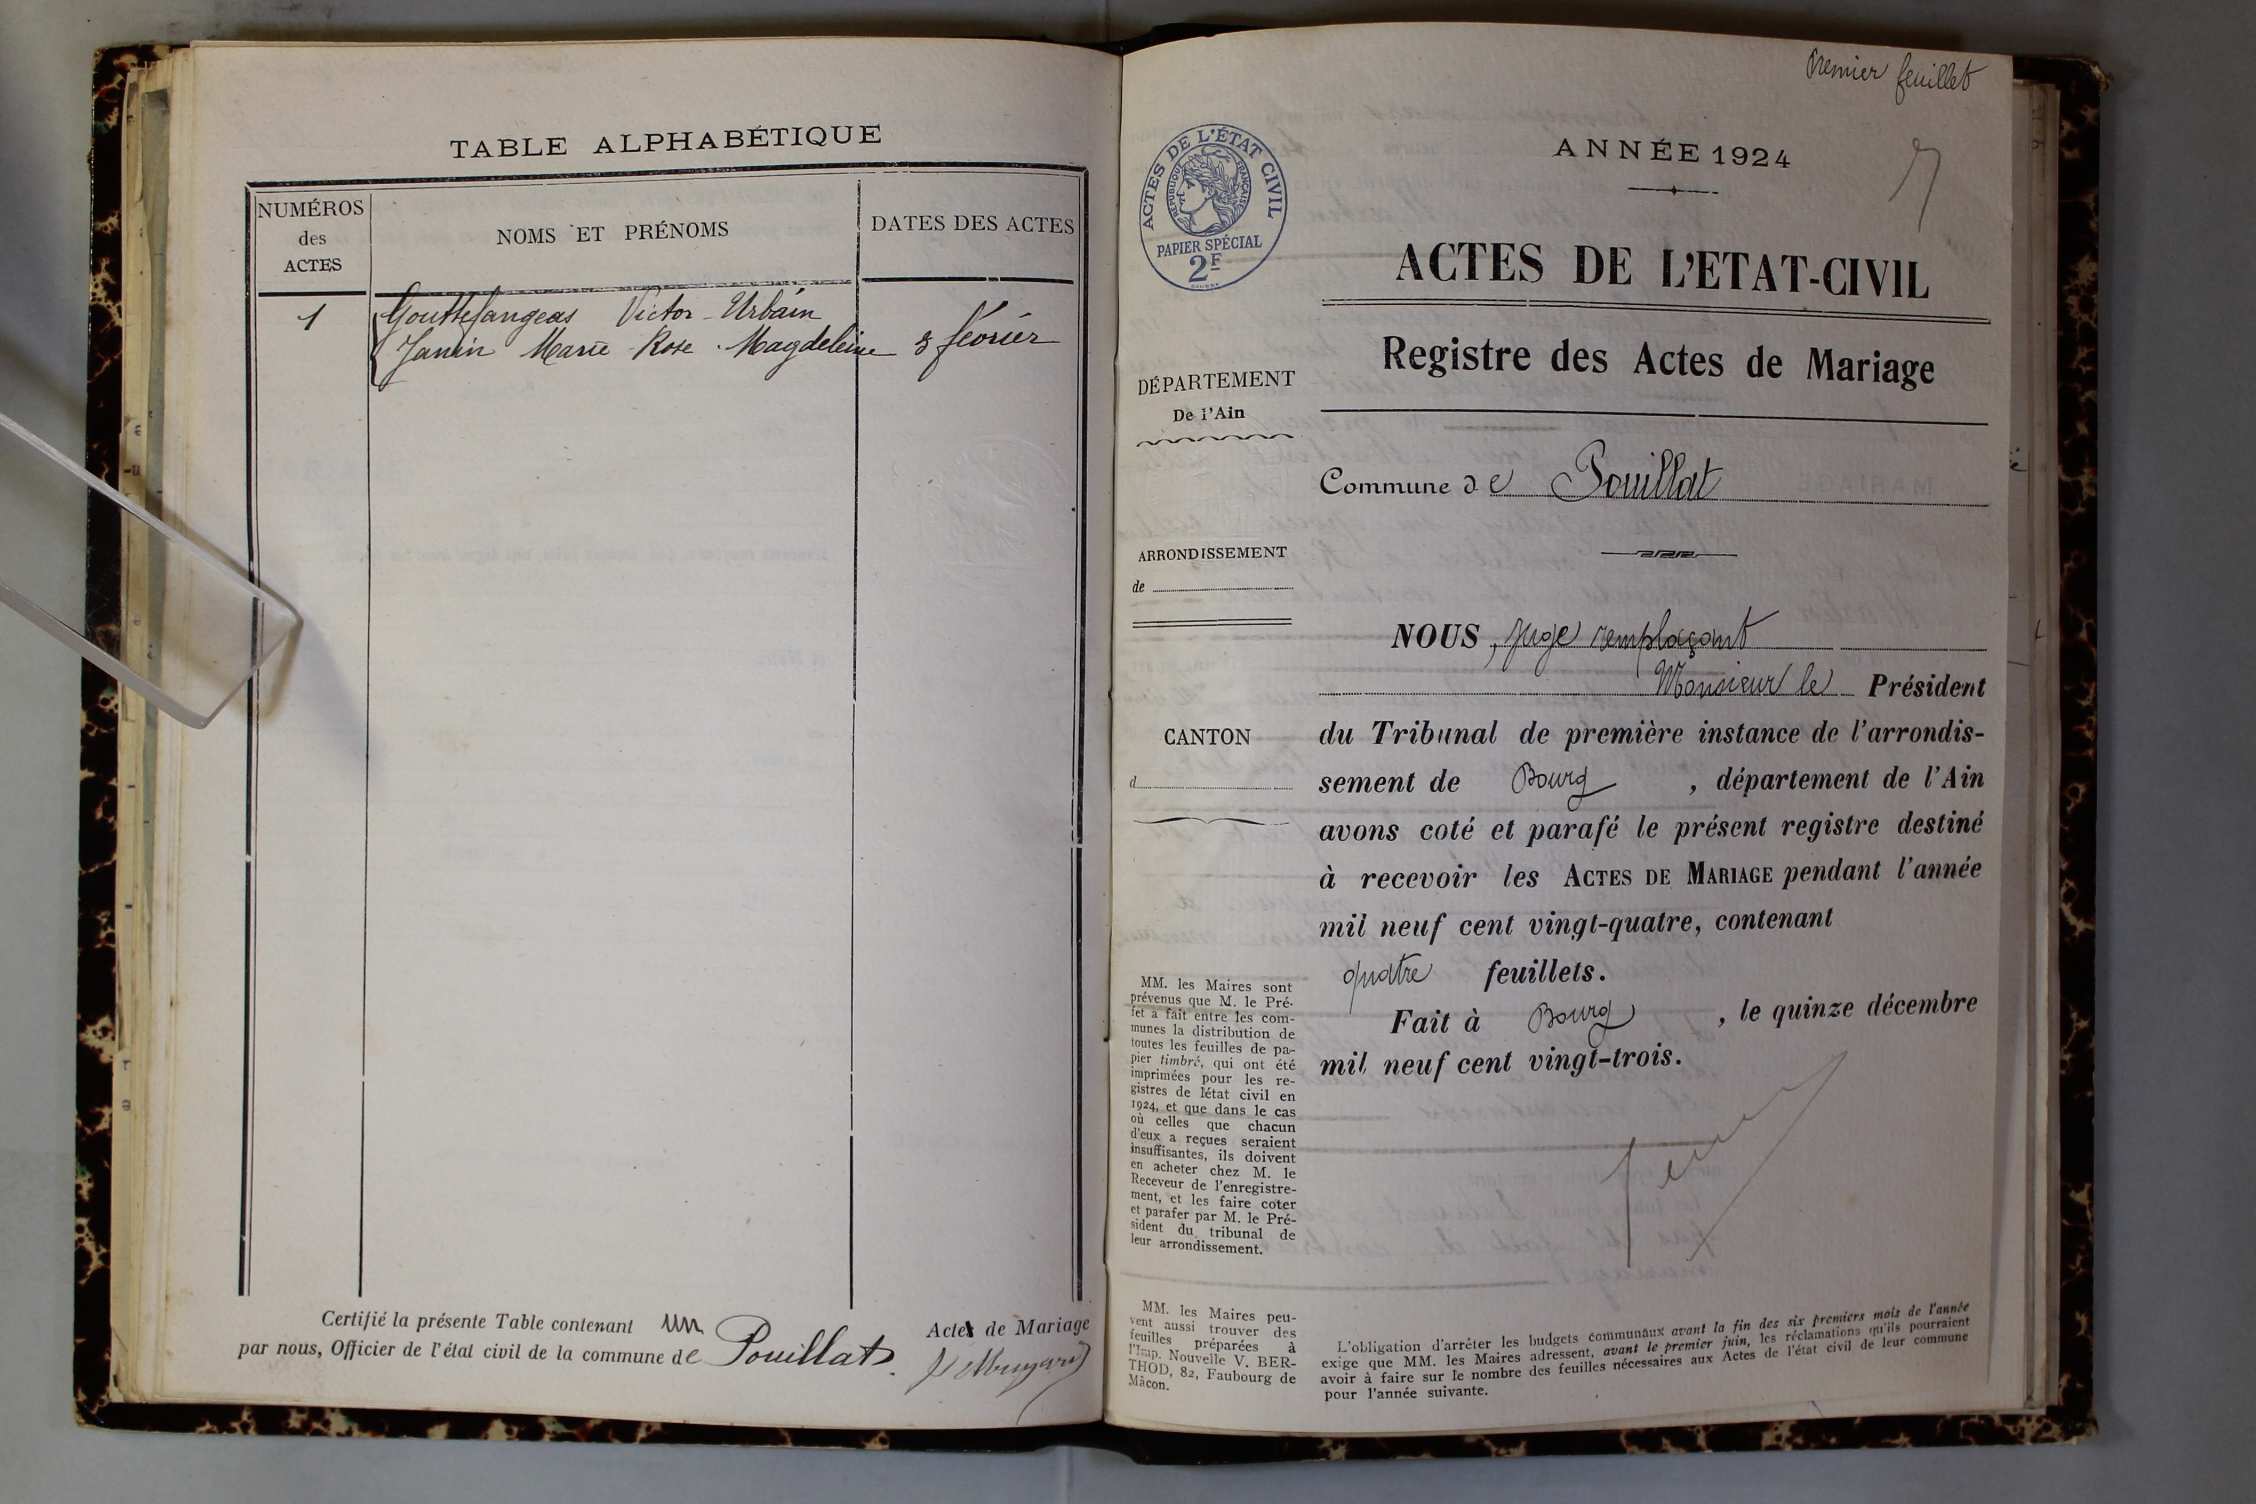 TABLE ALPHABÉTIQUE
NUMÉROS
des
ACTES
NOMS ET PRÉNOMS
DATES DES ACTES
1
Gouttefangeas Victor-Urbain
Janin Marie Rose Magdeleine
3 février
Certifié la présente Table contenant un Actes de Mariage
par nous, Officier de l'état civil de la commune de Pouillat.
Premier feuillet
ACTES DE L'ÉTAT CIVIL
RÉPUBLIQUE FRANÇAISE
PAPIER SPÉCIAL
2F
ANNÉE 1924
ACTES DE L'ETAT-CIVIL
Registre des Actes de Mariage
DÉPARTEMENT
De l'Ain
Commune de Pouillat
ARRONDISSEMENT
de
CANTON
d
NOUS, Juge remplaçant
Monsieur le Président
du Tribunal de première instance de l'arrondis-
sement de Bourg, département de l'Ain
avons coté et parafé le présent registre destiné
à recevoir les ACTES DE MARIAGE pendant l'année
mil neuf cent vingt-quatre, contenant
quatre feuillets.
Fait à Bourg, le quinze décembre
mil neuf cent vingt-trois.
MM. les Maires sont
prévenus que M. le Pré-
fet a fait entre les com-
munes la distribution de
toutes les feuilles de pa-
pier timbré, qui ont été
imprimées pour les re-
gistres de létat civil en
1924, et que dans le cas
où celles que chacun
d'eux a reçues seraient
insuffisantes, ils doivent
en acheter chez M. le
Receveur de l'enregistre-
ment, et les faire coter
et parafer par M. le Pré-
sident du tribunal de
leur arrondissement.
MM. les Maires peu-
vent aussi trouver des
feuilles préparées à
l'Imp. Nouvelle V. BER-
THOD, 82, Faubourg de
Mâcon.
L'obligation d'arrêter les budgets communaux avant la fin des six premiers mois de l'année
exige que MM. les Maires adressent, avant le premier juin, les réclamations qu'ils pourraient
avoir à faire sur le nombre des feuilles nécessaires aux Actes de l'état civil de leur commune
pour l'année suivante.